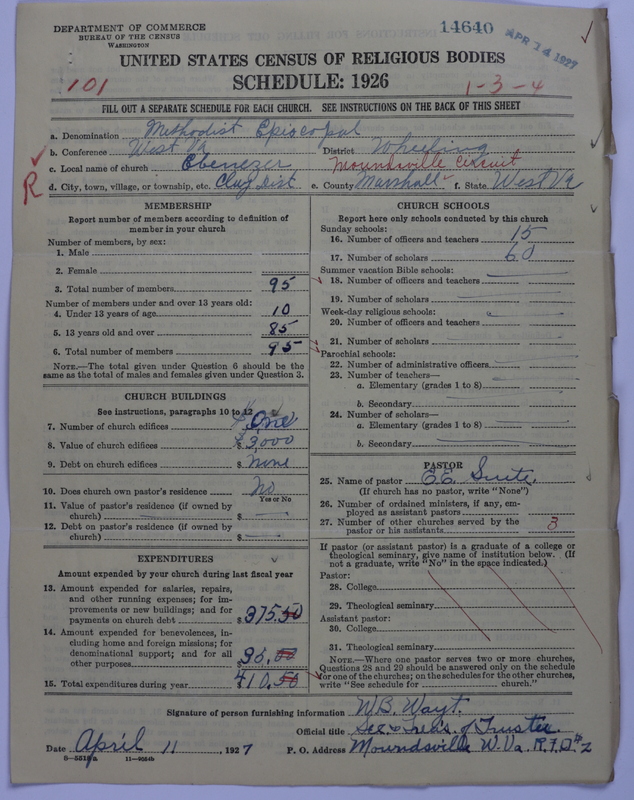 DEPARTMENT OF COMMERCE
BUREAU OF THE CENSUS
WASHINGTON
14640
APR 14 1927
UNITED STATES CENSUS OF RELIGIOUS BODIES
SCHEDULE: 1926
101
1-3-4
FILL OUT A SEPARATE SCHEDULE FOR EACH CHURCH. SEE INSTRUCTIONS ON THE BACK OF THIS SHEET
a. Denomination Methodist Episcopal
b. Conference West Va District Wheeling
c. Local name of church Ebenezer Moundsville Circuit
R
d. City, town, village, or township, etc. Clay Dist e. County Marshall f. State West Va
MEMBERSHIP
Report number of members according to definition of
member in your church
Number of members, by sex:
1. Male
2. Female
3. Total number of members 95
Number of members under and over 13 years old:
4. Under 13 years of age 10
5. 13 years old and over 85
6. Total number of members 95
NOTE.—The total given under Question 6 should be
the same as the total of males and females given under Question 3.
CHURCH BUILDINGS
See instructions, paragraphs 10 to 12
7. Number of church edifices One
8. Value of church edifices $ 3,000
9. Debt on church edifices $ none
10. Does church own pastor's residence No
Yes or No
11. Value of pastor's residence (if owned by
church) $
12. Debt on pastor's residence (if owned by
church) $
EXPENDITURES
Amount expended by your church during last fiscal year
13. Amount expended for salaries, repairs,
and other running expenses; for im-
provements or new buildings; and for
payments on church debt $ 375.50
14. Amount expended for benevolences, in-
cluding home and foreign missions; for
denominational support; and for all
other purposes 36.00
15. Total expenditures during year 410.50
CHURCH SCHOOLS
Report here only schools conducted by this church
Sunday schools:
16. Number of officers and teachers 15
17. Number of scholars 60
Summer vacation Bible schools:
18. Number of officers and teachers
19. Number of scholars
Week-day religious schools:
20. Number of officers and teachers
21. Number of scholars
Parochial schools:
22. Number of administrative officers
23. Number of teachers—
a. Elementary (grades 1 to 8)
b. Secondary
24. Number of scholars—
a. Elementary (grades 1 to 8)
b. Secondary
PASTOR
25. Name of pastor E.E. Suite.
(If church has no pastor, write "None")
26. Number of ordained ministers, if any, em-
ployed as assistant pastors
27. Number of other churches served by the
pastor or his assistants 3
If pastor (or assistant pastor) is a graduate of a college or
theological seminary, give name of institution below. (If
not a graduate, write "No" in the space indicated.)
Pastor:
28. College
29. Theological seminary
Assistant pastor:
30. College
31. Theological seminary
NOTE.—Where one pastor serves two or more churches,
Questions 28 and 29 should be answered only on the schedule
for one of the churches; on the schedules for the other churches,
write "See schedule for church."
Signature of person furnishing information W.B. Wayt.
Official title Sec & Treas. of Trustee
Date April 11, 1927 P. O. Address Moundsville W.Va. R.F.D #2
8-5518a 11-9554b